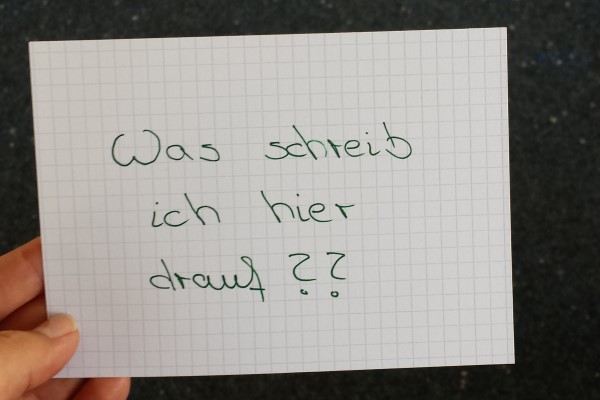 Was schreib
ich hier
drauf ??